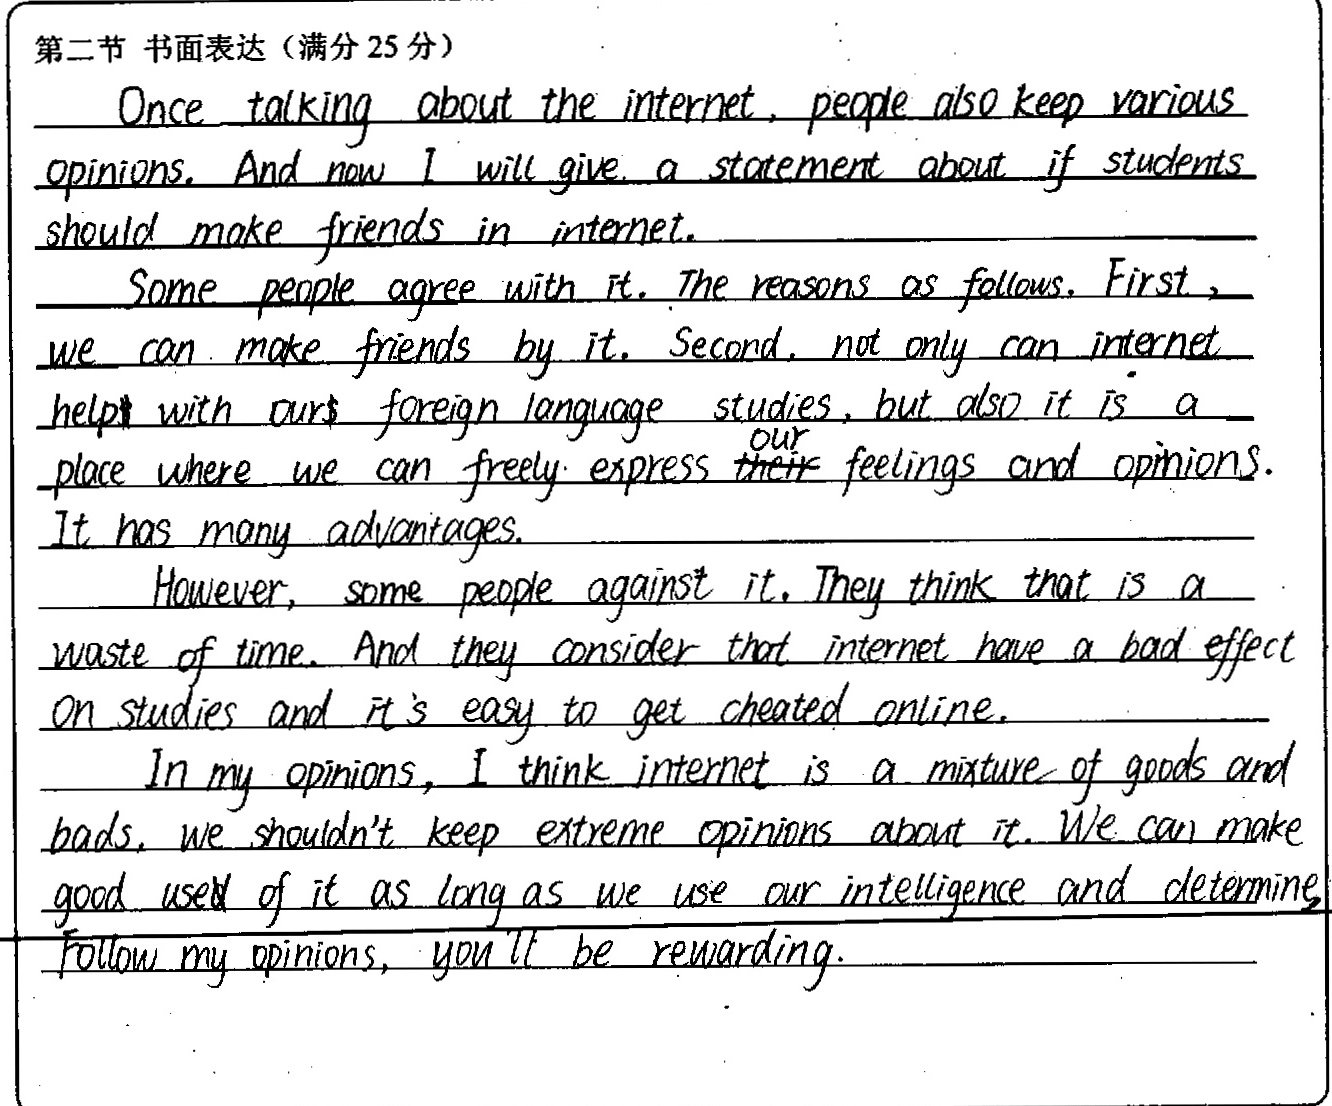 第二节 书面表达（满分 25 分）
Once talking about the internet, people also keep various
opinions. And now I will give a statement about if students
should make friends in internet.
Some people agree with it. The reasons as follows. First,
we can make friends by it. Second, not only can internet
help with our foreign language studies, but also it is a
our
place where we can freely express their feelings and opinions.
It has many advantages.
However, some people against it. They think that is a
waste of time. And they consider that internet have a bad effect
on studies and it's easy to get cheated online.
In my opinions, I think internet is a mixture of goods and
bads. We shouldn't keep extreme opinions about it. We can make
good use of it as long as we use our intelligence and determine
Follow my opinions, you'll be rewarding.